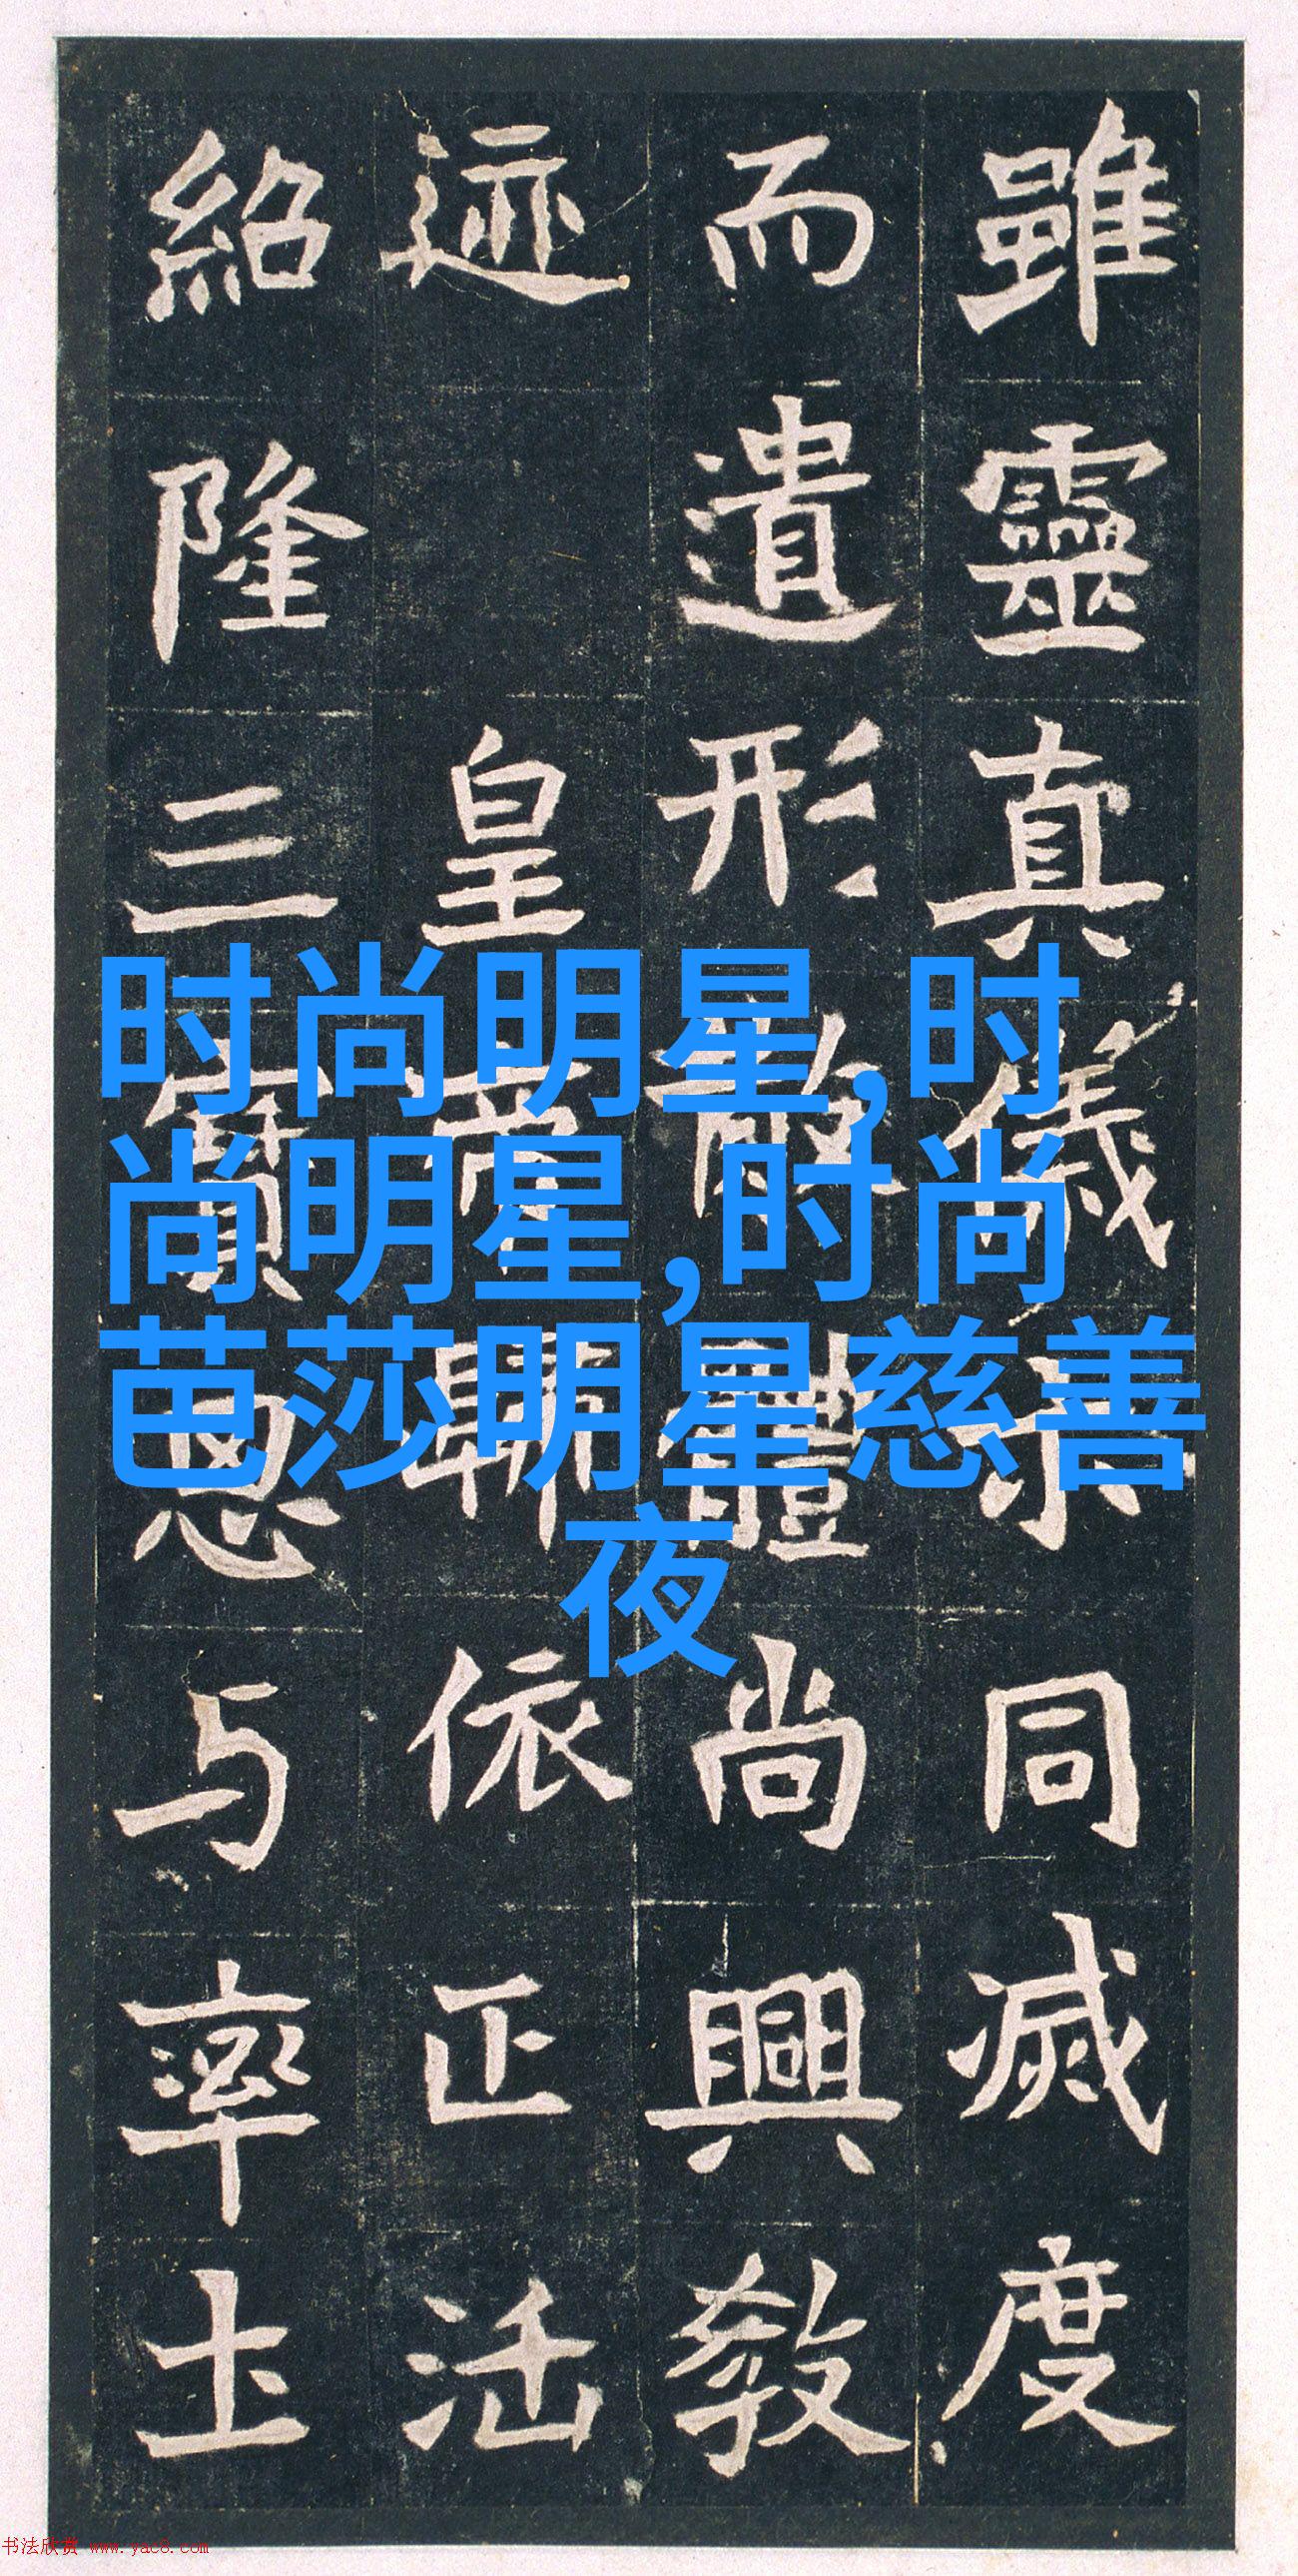 雖靈真儀示同滅度
而遺形散體尚興教
迹 皇帝歸依正法
紹隆三寶思与率土
时尚明星,时
尚明星,时尚
芭莎明星慈善
夜
书法欣赏 www.yac8.com